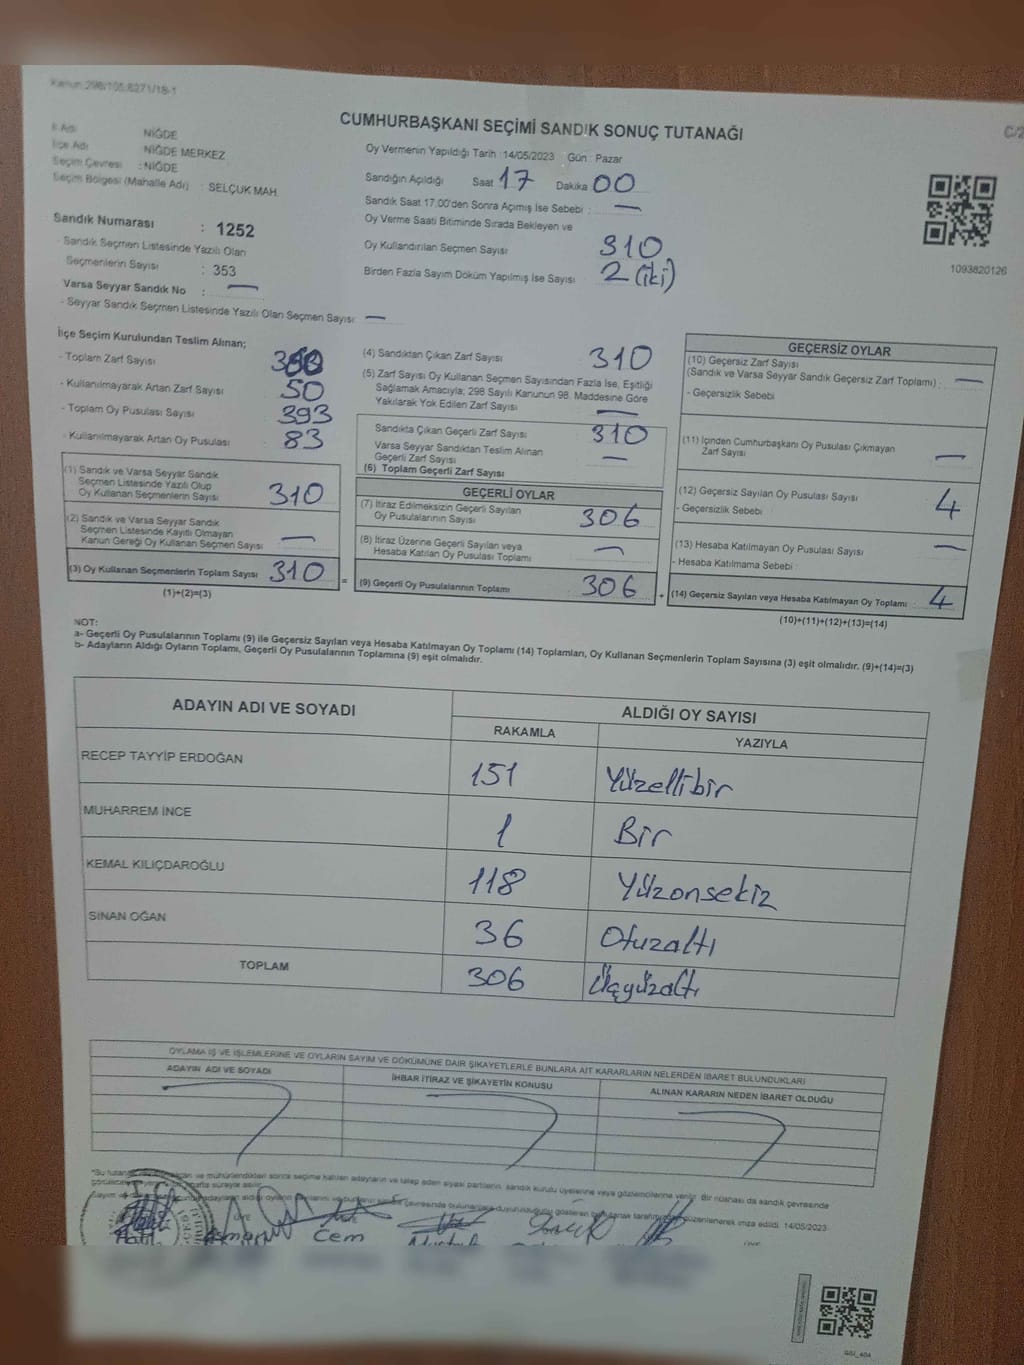 Kanun:298/105,6271/18-1
CUMHURBAŞKANI SEÇİMİ SANDIK SONUÇ TUTANAĞI
C/2
İl Adı NİĞDE
İlçe Adı NİĞDE MERKEZ
Seçim Çevresi : NİĞDE
Seçim Bölgesi (Mahalle Adı) : SELÇUK MAH.
Oy Vermenin Yapıldığı Tarih :14/05/2023 Gün : Pazar
Sandığın Açıldığı Saat 17 Dakika 00
Sandık Saat 17.00'den Sonra Açımış İse Sebebi : —
Oy Verme Saati Bitiminde Sırada Bekleyen ve
Oy Kullandırılan Seçmen Sayısı 310
Birden Fazla Sayım Döküm Yapılmış İse Sayısı : 2 (iki)
1093820126
Sandık Numarası : 1252
- Sandık Seçmen Listesinde Yazılı Olan
Seçmenlerin Sayısı : 353
Varsa Seyyar Sandık No : —
- Seyyar Sandık Seçmen Listesinde Yazılı Olan Seçmen Sayısı : —
İlçe Seçim Kurulundan Teslim Alınan;
- Toplam Zarf Sayısı
- Kullanılmayarak Artan Zarf Sayısı 50
- Toplam Oy Pusulası Sayısı 393
- Kullanılmayarak Artan Oy Pusulası 83
(1) Sandık ve Varsa Seyyar Sandık
Seçmen Listesinde Yazılı Olup
Oy Kullanan Seçmenlerin Sayısı 310
(2) Sandık ve Varsa Seyyar Sandık
Seçmen Listesinde Kayıtlı Olmayan
Kanun Gereği Oy Kullanan Seçmen Sayısı : —
(3) Oy Kullanan Seçmenlerin Toplam Sayısı 310
(1)+(2)=(3)
=
(4) Sandıktan Çıkan Zarf Sayısı 310
(5) Zarf Sayısı Oy Kullanan Seçmen Sayısından Fazla İse, Eşitliği
Sağlamak Amacıyla, 298 Sayılı Kanunun 98. Maddesine Göre
Yakılarak Yok Edilen Zarf Sayısı —
Sandıkta Çıkan Geçerli Zarf Sayısı 310
Varsa Seyyar Sandıktan Teslim Alınan
Geçerli Zarf Sayısı —
(6) Toplam Geçerli Zarf Sayısı
GEÇERLİ OYLAR
(7) İtiraz Edilmeksizin Geçerli Sayılan
Oy Pusulalarının Sayısı 306
(8) İtiraz Üzerine Geçerli Sayılan veya
Hesaba Katılan Oy Pusulası Toplamı —
(9) Geçerli Oy Pusulalarının Toplamı 306
+
GEÇERSİZ OYLAR
(10) Geçersiz Zarf Sayısı
(Sandık ve Varsa Seyyar Sandık Geçersiz Zarf Toplamı) : —
- Geçersizlik Sebebi
(11) İçinden Cumhurbaşkanı Oy Pusulası Çıkmayan
Zarf Sayısı —
(12) Geçersiz Sayılan Oy Pusulası Sayısı 4
- Geçersizlik Sebebi :
(13) Hesaba Katılmayan Oy Pusulası Sayısı —
- Hesaba Katılmama Sebebi :
(14) Geçersiz Sayılan veya Hesaba Katılmayan Oy Toplamı 4
(10)+(11)+(12)+(13)=(14)
NOT:
a- Geçerli Oy Pusulalarının Toplamı (9) ile Geçersiz Sayılan veya Hesaba Katılmayan Oy Toplamı (14) Toplamları, Oy Kullanan Seçmenlerin Toplam Sayısına (3) eşit olmalıdır. (9)+(14)=(3)
b- Adayların Aldığı Oyların Toplamı, Geçerli Oy Pusulalarının Toplamına (9) eşit olmalıdır.
ADAYIN ADI VE SOYADI
ALDIĞI OY SAYISI
RAKAMLA YAZIYLA
RECEP TAYYİP ERDOĞAN 151 Yüzellibir
MUHARREM İNCE 1 Bir
KEMAL KILIÇDAROĞLU 118 Yüzonsekiz
SİNAN OĞAN 36 Otuzaltı
TOPLAM 306 Üçyüzaltı
OYLAMA İŞ VE İŞLEMLERİNE VE OYLARIN SAYIM VE DÖKÜMÜNE DAİR ŞİKAYETLERLE BUNLARA AİT KARARLARIN NELERDEN İBARET BULUNDUKLARI
ADAYIN ADI VE SOYADI İHBAR İTİRAZ VE ŞİKAYETİN KONUSU ALINAN KARARIN NEDEN İBARET OLDUĞU
ve mühürlendikten sonra seçime katılan adayların ve talep eden siyasi partilerin, sandık kurulu üyelerine veya gözlemcilerine verilir. Bir nüshası da sandık çevresinde
düzenlenerek imza edildi. 14/05/2023
Cem